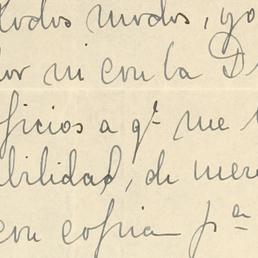 todos modos, yo
por ni con la D
ficios a qe me
bilidad, de mere
con copia pa